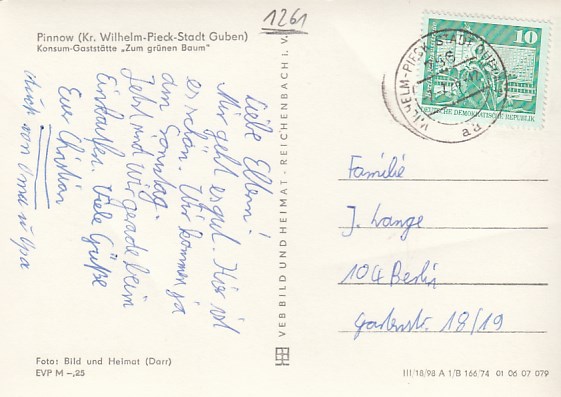 1261
Pinnow (Kr. Wilhelm-Pieck-Stadt Guben)
Konsum-Gaststätte „Zum grünen Baum"
Liebe Eltern!
Mir geht es gut. Hier ist
es schön. Wir kommen ja
am Sonntag.
Jetzt sind wir gerade beim
Einkaufen. Viele Grüße
Euer Christian
auch von Oma u. Opa
VEB BILD UND HEIMAT · REICHENBACH i. V.
10
DEUTSCHE DEMOKRATISCHE REPUBLIK
WILHELM-PIECK-STADT GUBEN
Familie
J. Lange
104 Berlin
Gartenstr. 18/19
Foto: Bild und Heimat (Darr)
EVP M –,25
III/18/98 A 1/B 166/74 01 06 07 079